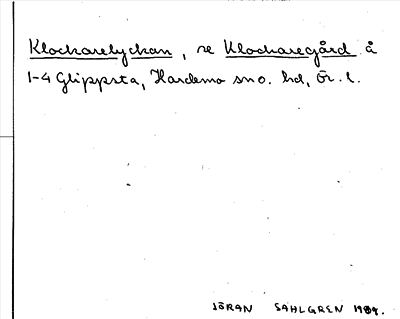 Klockarelyckan, se Klockaregård å
1-4 Glippsta, Hardemo sno. hd, Ör. l.
JÖRAN SAHLGREN 1984.